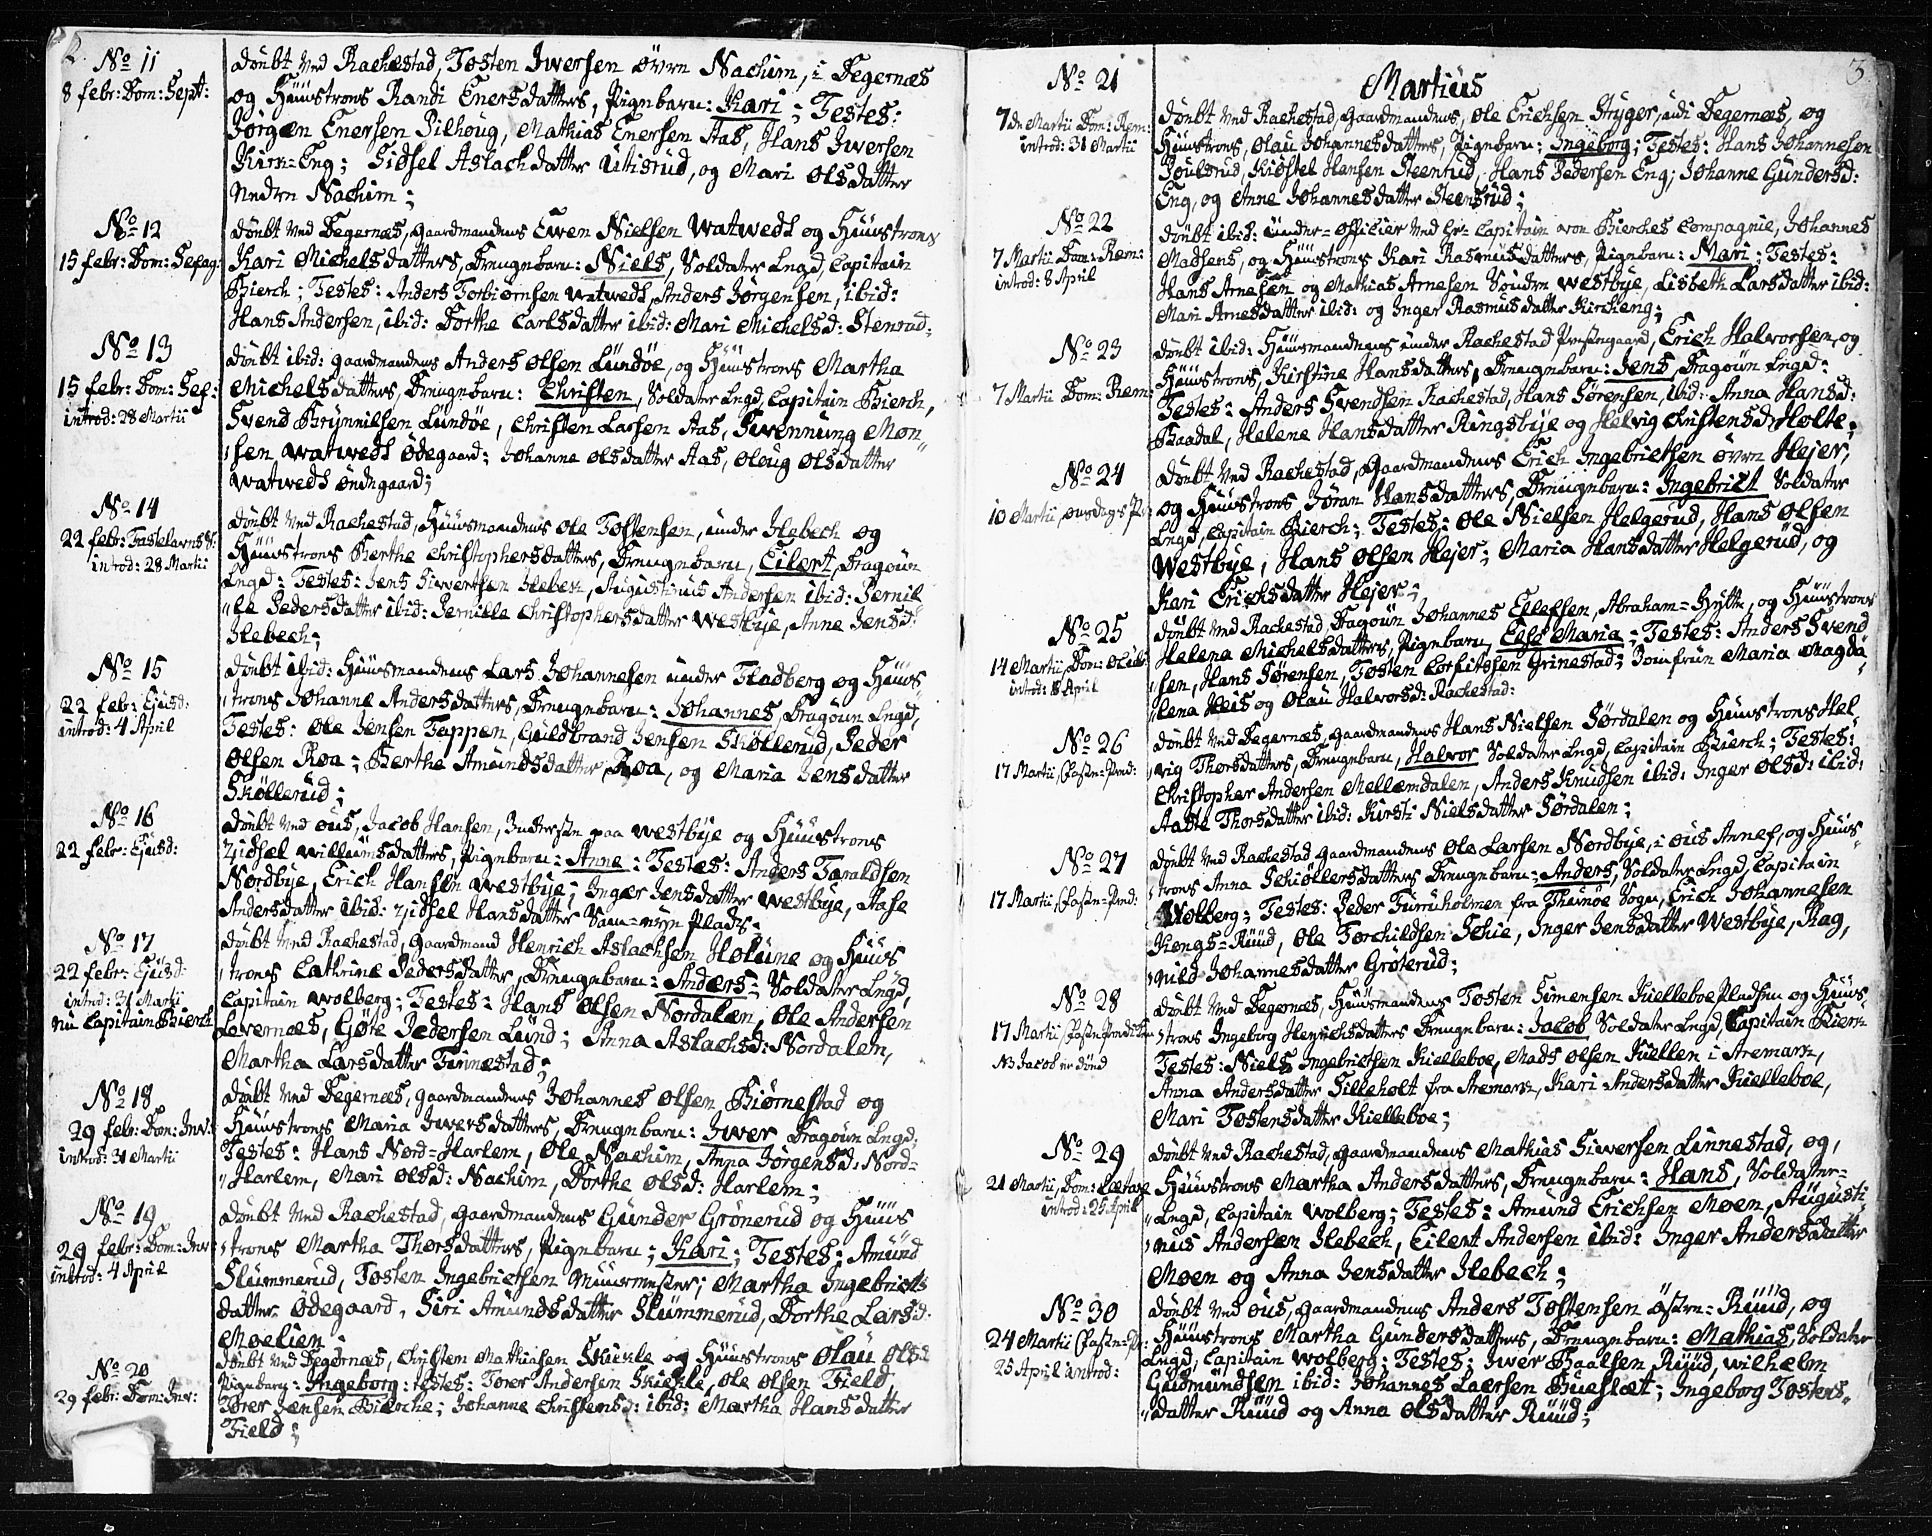 2.
No 11
8 febr: Dom: Sept:
Döubt ved Rachestad, Tosten Iwersen övre Nachim, i Degernæs
og Hüüstroes Randi Enersdatters, Pigebarn: Kari; Testes:
Jörgen Enersen Pilhoug, Mathias Enersen Aas, Hans Iwersen
Kirn-Eng; Sidsel Aslachdatter Utisrud, og Mari Olsdatter
Nedre Nachim;
No 12
15 febr: Dom: Sexag:
Döubt ved Degernæs, Gaardmandens Ewen Nielsen Watwedt og Hüüstroes
Kari Michelsdatters, Drengebarn: Niels, Soldater Lægd, Capitain
Bierch; Testes: Anders Torbiörnsen Watwedt, Anders Jörgensen, ibid:
Hans Andersen, ibid: Dorthe Carlsdatter ibid: Mari Michelsd: Stenrud.
No 13
15 febr: Dom: Sex:
introd: 28 Martii
Döubt ibid: gaardmandens Anders Olsen Lündöe, og Hüüstroes Martha
Michelsdatters, Drengebarn: Christen, Soldater Lægd, Capitain Bierch,
Svend Brynnilsen Lündöe, Christen Larsen Aas, Swennung Mon„
„sen Watwedt Ödegaard; Johanne Olsdatter Aas, Oloug Olsdatter
Watwedt Ödegaard;
No 14
22 febr: Fastelavns S:
introd: 28 Martii
Döubt ved Rachestad, Hüüsmandens Ole Tostensen, under Hebech og
Hüüstroes Berthe Christophersdatters, Drengebarn, Eilert, Dragoun
Lægd: Testes: Jens Siwersen Hebech, Augustinus Andersen ibid: Pernil
„le Pedersdatter ibid: Pernille Christophersdatter Westbye, Anne Jensd:
Hebech;
No 15
22 febr: Ejusd:
introd: 4 April
Döubt ibid: Hüüsmandens Lars Johannesen under Fladberg og Hüüs„
„troes Johanne Andersdatters, Drengebarn: Johannes, Dragoun Lægd,
Testes: Ole Jensen Tappen, Guldbrand Jensen Sköllerud, Peder
Olsen Roa; Berthe Amundsdatter Roa, og Maria Jensdatter
Sköllerud;
No 16
22 febr: Ejusd:
Döubt ved Ous, Jacob Hansen, Inderste paa Westbye og Hüüstroes
Zidsel Willumsdatters, Pigebarn: Anne: Testes: Anders Taraldsen
Nordbye, Erich Hansen Westbye; Inger Jensdatter Westbye, Aase
Andersdatter ibid: Zidsel Hansdatter Plads;
No 17
22 febr: Ejusd:
introd: 31 Martii
nu Capitain Bierch
Döubt ved Rachestad, Gaardmand Henrich Aslachsen Holüne og Hüüs
„troes Cathrine Pedersdatter, Drengebarn: Anders; Soldater Lægd,
Capitain Wolberg; Testes: Hans Olsen Nordalen, Ole Andersen
Levernæs, Gjöte Pedersen Lund; Anna Aslachsd: Nordalen,
Martha Larsdatter Finnestad;
No 18
29 febr: Dom: Inv:
introd: 31 Martii
Döubt ved Degernæs, Gaardmandens Johannes Olsen Biörnestad og
Hüüstroes Maria Iwersdatters, Drengebarn: Iwer Dragoun Lægd;
Testes: Hans Nord-Harlem, Ole Nachim, Anna Jörgensd: Nord-
„Harlem, Mari Olsd: Nachim, Dorthe Olsd: Harlem;
No 19
29 febr: Dom: Inv:
introd: 4 April
Döubt ved Rachestad, gaardmandens Gunder Grönerud og Hüüs
„troes Martha Thorsdatters, Pigebarn; Kari; Testes: Amund
Slümmerud, Tosten Ingebrietsen Muurmester; Martha Ingebriets
datter Ödegaard, Siri Amundsdatter Slümmerud, Dorthe Larsd:
Moelien;
No 20
29 febr: Dom: Inv:
Döubt ved Degernæs, Christen Mathiasen Skiekle og Hüüstroes Olau Olsd:
Pigebarn: Ingeborg: testes: Torer Andersen Skiekle, Ole Olsen Field
Torer Jensen Bierche; Johanne Christensd: ibid: Martha Hansdatter
Field;
3
Martius
No 21
7de Martii Dom: Rem:
introd: 31 Martii
Döubt ved Rachestad, Gaardmandens, Ole Erichsen Stryger, udi Degernæs, og
Hüüstroes, Olau Johannesdatters, Pigebarn; Ingeborg; Testes: Hans Johannesen
Joulsrud, Kiöstel Hansen Steenrud, Hans Pedersen Eng; Johanne Gundersd:
Eng, og Anne Johannesdatter Steensrud;
No 22
7 Martii Dom: Rem:
introd: 8 April
Döubt ibid: Under-Officier ved Hr: Capitain von Bierches Compagnie, Johannes
Madsens, og Hüüstroes Kari Rasmusdatters, Pigebarn: Mari; Testes:
Hans Arnesen og Mathias Arnesen Söndre Westbye, Lisbeth Larsdatter ibid:
Mari Arnesdatter ibid: og Inger Rasmusdatter Kircheng;
No 23
7 Martii Dom: Rem:
Döubt ibid: Hüüsmandens under Rachestad Prestegaard, Erich Halvorsen, og
Hüüstroes, Kirstine Hansdatters, Drengebarn: Jens, Dragoun Lægd:
Testes: Anders Svendsen Rachestad, Hans Sörensen, ibid: Anna Hansd:
Baadal, Helene Hansdatter Ringsbye og Helvig Christensd: Holte;
No 24
10 Martii, onsdags Pr:
Döubt ved Rachestad, Gaardmandens Erich Ingebrietsen övre Hejer,
og Hüüstroes Jöran Hansdatters, Drengebarn: Ingebriet Soldater
Lægd, Capitain Bierch; Testes: Ole Nielsen Helgerud, Hans Olsen
Westbye, Hans Olsen Hejer; Maria Hansdatter Helgerud, og
Kari Erichsdatter Hejer;
No 25
14 Martii Dom: Oculi
introd: 8 April
Döubt ved Rachestad, Dragoun Johannes Ellefsen, Abraham-Hytte, og Hüüstroes
Helena Michelsdatters, Pigebarn, Else Maria; Testes: Anders Svend
„sen, Hans Sörensen, Tosten Corfitssen Grinestad; Jomfrue Maria Magda„
„lena Heis og Olau Halvorsd: Rachestad:
No 26
17 Martii, Faste-Pred:
Döubt ved Degernæs, Gaardmandens Hans Nielsen Sördalen og Hüüstroes Hel„
„vig Thorsdatters, Drengebarn, Halvor Soldater Lægd, Capitain Bierch; Testes:
Christopher Andersen Mellemdalen, Anders Knudsen ibid: Inger Olsd: ibid:
Aaste Thorsdatter ibid: Kirsti Nielsdatter Sördalen;
No 27
17 Martii, Faste-Pred:
Döubt ved Rachestad Gaardmandens Ole Larsen Nordbye, i Ous Annex, og Hüüs„
„troes Anna Schiöllersdatters Drengebarn: Anders, Soldater Lægd, Capitain
Wolberg; Testes: Peder Furruholmen fra Thrünöe Sogn, Erich Johannesen
Kongs-Rüüd, Ole Torchildsen Schie, Inger Jensdatter Westbye, Rag„
„nild Johannesdatter Gröterud;
No 28
17 Martii, Faste Pred:
NB Jacob er död
Döubt ved Degernæs, Hüüsmandens Tosten Simensen Kielleboe Pladsen og Hüüs„
„troes Ingeborg Henrichsdatters Drengebarn: Jacob Soldater Lægd, Capitain Bierch
Testes: Niels Ingebrietsen Kielleboe, Mads Olsen Kiellen i Aremark,
Anna Andersdatter Silleholt fra Aremark, Kari Andersdatter Kielleboe,
Mari Tostensdatter Kielleboe;
No 29
21 Martii, Dom: Lætare
introd: 25 April
Döubt ved Rachestad, Gaardmandens Mathias Siwersen Linnestad, og,
Hüüstroes Martha Andersdatters, Drengebarn: Hans, Soldater-
„Lægd, Capitain Wolberg; Testes: Amund Erichsen Moen, Augusti„
„nus Andersen Hebech, Eilert Andersen ibid: Inger Andersdatter
Moen og Anna Jensdatter Hebech;
No 30
24 Martii (Faste-Pr:
25 April introd:
Döubt ved Ous, Gaardmandens Anders Tostensen Östre-Rüüd, og
Hüüstroes Martha Gundersdatters, Drengebarn: Mathias, Soldater
Lægd, Capitain Wolberg; Testes: Iwer Paalsen Rüüd, Wilhelm
Gudmundsen ibid: Johannes Laersen Bueslæt; Ingeborg Tostens„
„datter Rüüd og Anna Olsdatter Rüüd;